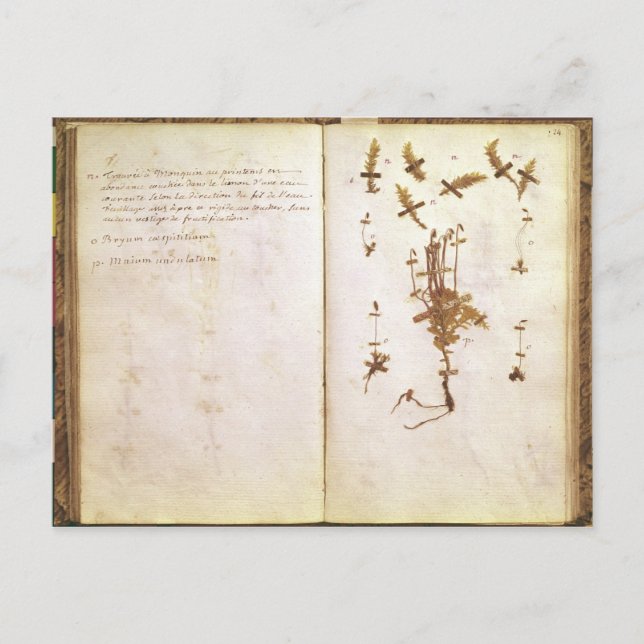 n. Trouvéi à Monquin au printems en
abondance couchée dans le limon d'une eau
courante selon la direction du fil de l'eau
feuillage assés âpre et rigide au toucher, sans
aucun vestige de fructification.
o Bryum cæspititium
p. Mnium undulatum
24
n n n
o o
p.
o o